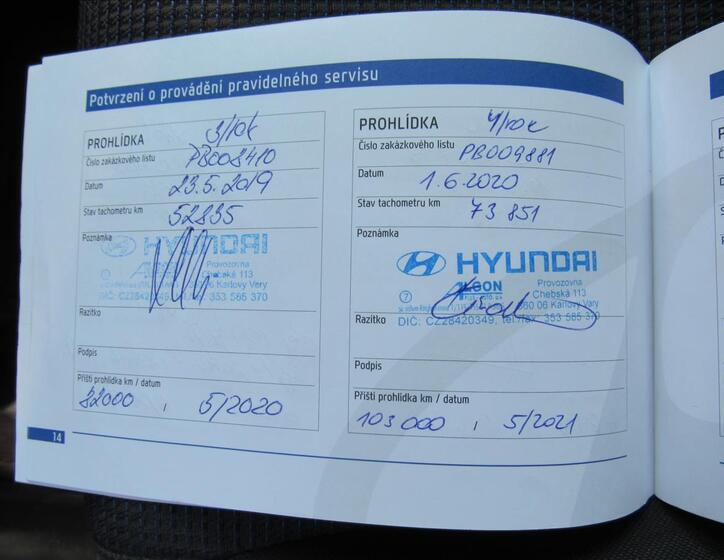 Potvrzení o provádění pravidelného servisu
PROHLÍDKA 3/rok
Číslo zakázkového listu PB008410
Datum 23.5.2019
Stav tachometru km 52835
Poznámka
HYUNDAI
Provozovna
Chebská 113
360 06 Karlovy Vary
DIČ: CZ28420349, 353 585 370
Razítko
Podpis
Příští prohlídka km / datum
82000 / 5/2020
PROHLÍDKA 4/rok
Číslo zakázkového listu PB009881
Datum 1.6.2020
Stav tachometru km 73 851
Poznámka
HYUNDAI
ALGON Provozovna
7 Chebská 113
360 06 Karlovy Vary
Razítko DIČ: CZ28420349, tel./fax: 353 585 370
Podpis
Příští prohlídka km / datum
103 000 / 5/2021
14